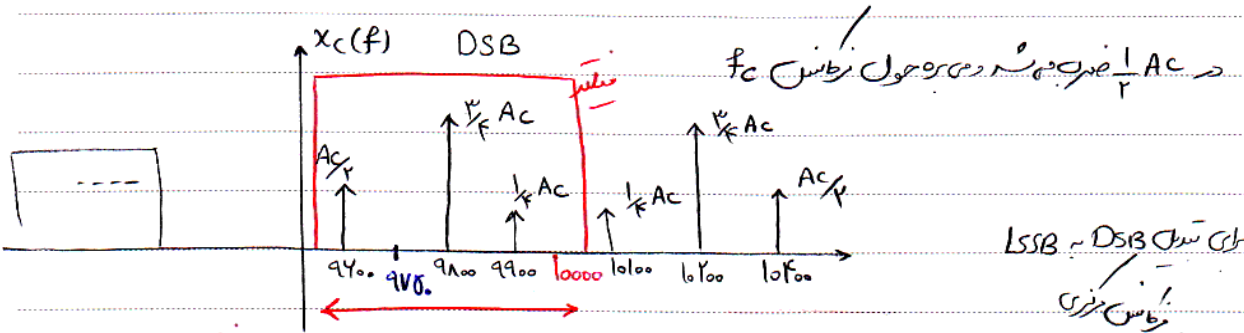 Xc(f) DSB
در ۱/۲ Ac ضرب می شود و می ره حول فرکانس fc
فیلتر
Ac/۲ ۳/۴ Ac ۱/۴ Ac ۱/۴ Ac ۳/۴ Ac Ac/۲
----
۹۶۰۰ ۹۷۵۰ ۹۸۰۰ ۹۹۰۰ ۱۰۰۰۰ ۱۰۱۰۰ ۱۰۲۰۰ ۱۰۴۰۰
برای تبدیل DSB به LSSB
فرکانس مرکزی